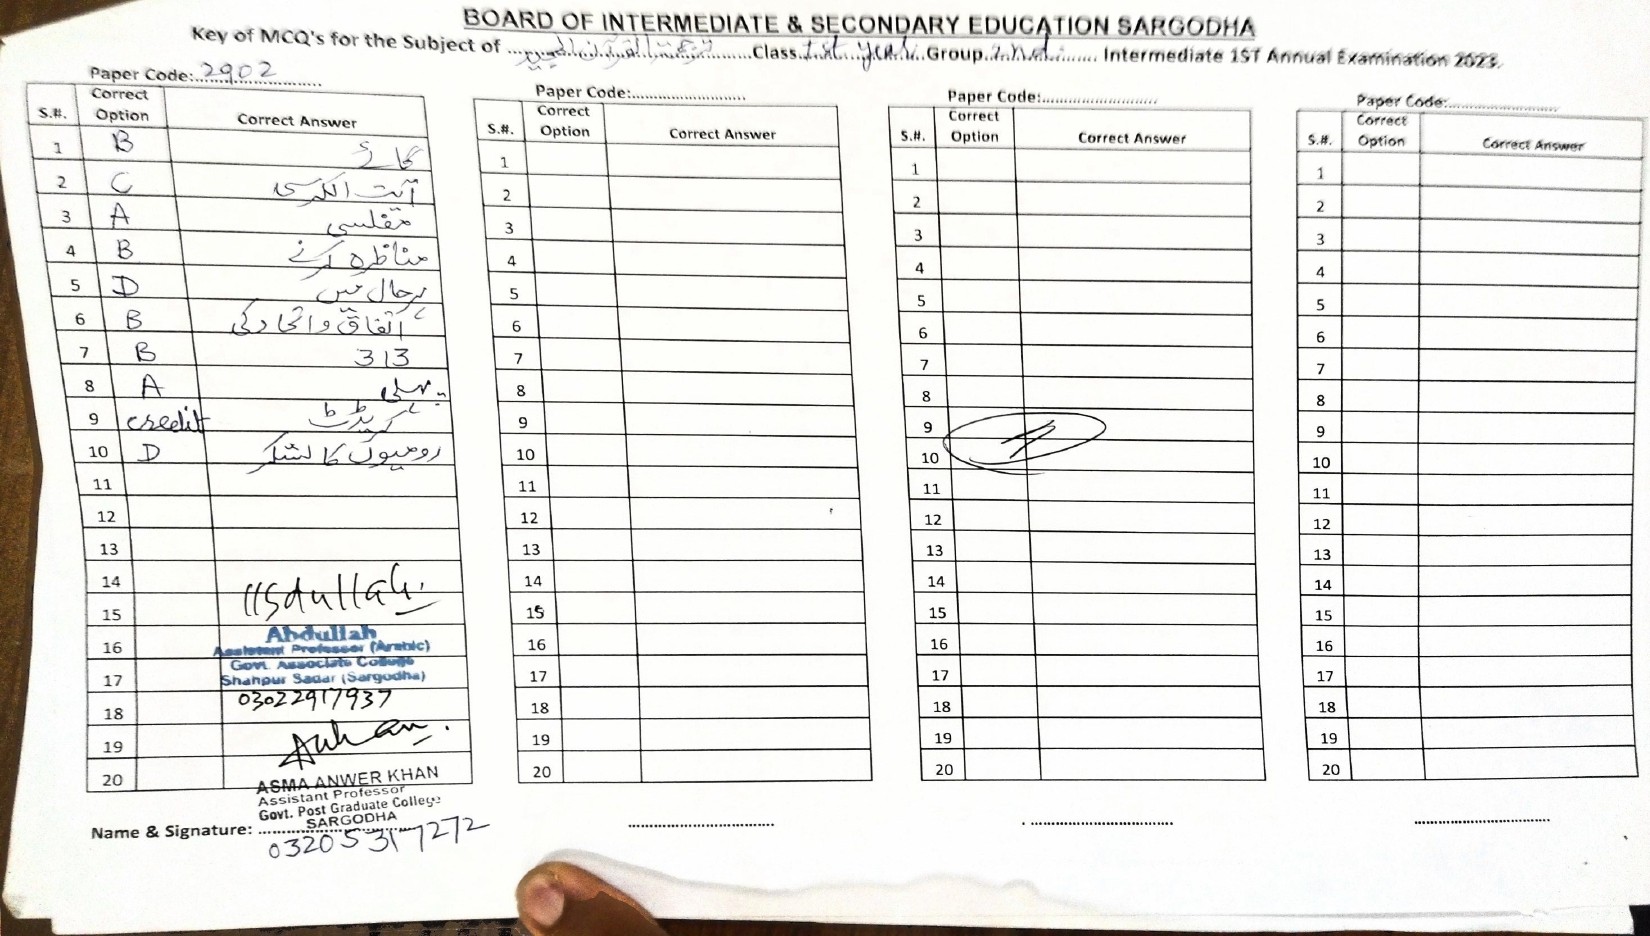 BOARD OF INTERMEDIATE & SECONDARY EDUCATION SARGODHA
Key of MCQ's for the Subject of ترجمۃ القرآن المجید Class 1st year Group 2nd Intermediate 1ST Annual Examination 2023.
Paper Code: 2902
S.#. Correct Option Correct Answer
1 B گائے
2 C آیت الکرسی
3 A مفلسی
4 B مناظرہ کرنے
5 D ہرحال میں
6 B اتفاق و اتحاد کی
7 B 313
8 A پہلی
9 credit کریڈٹ
10 D رومیوں کا لشکر
11
12
13
14
15
16
17
18
19
20
Abdullah
Abdullah
Assistant Professor (Arabic)
Govt. Associate College
Shahpur Sadar (Sargodha)
03022917937
ASMA ANWER KHAN
Assistant Professor
Govt. Post Graduate College
SARGODHA
Name & Signature:
03205317272
Paper Code:
S.#. Correct Option Correct Answer
1
2
3
4
5
6
7
8
9
10
11
12
13
14
15
16
17
18
19
20
Paper Code:
S.#. Correct Option Correct Answer
1
2
3
4
5
6
7
8
9
10
11
12
13
14
15
16
17
18
19
20
Paper Code:
S.#. Correct Option Correct Answer
1
2
3
4
5
6
7
8
9
10
11
12
13
14
15
16
17
18
19
20